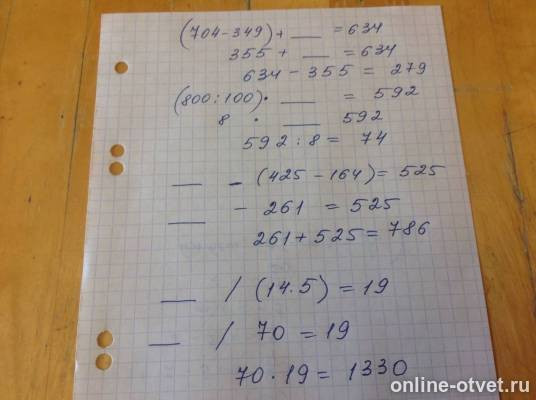 (704-349) + __ = 634
355 + __ = 634
634 - 355 = 279
(800:100) · __ = 592
8 · __ 592
592 : 8 = 74
__ - (425 - 164) = 525
__ - 261 = 525
261 + 525 = 786
__ / (14.5) = 19
__ / 70 = 19
70 · 19 = 1330
online-otvet.ru